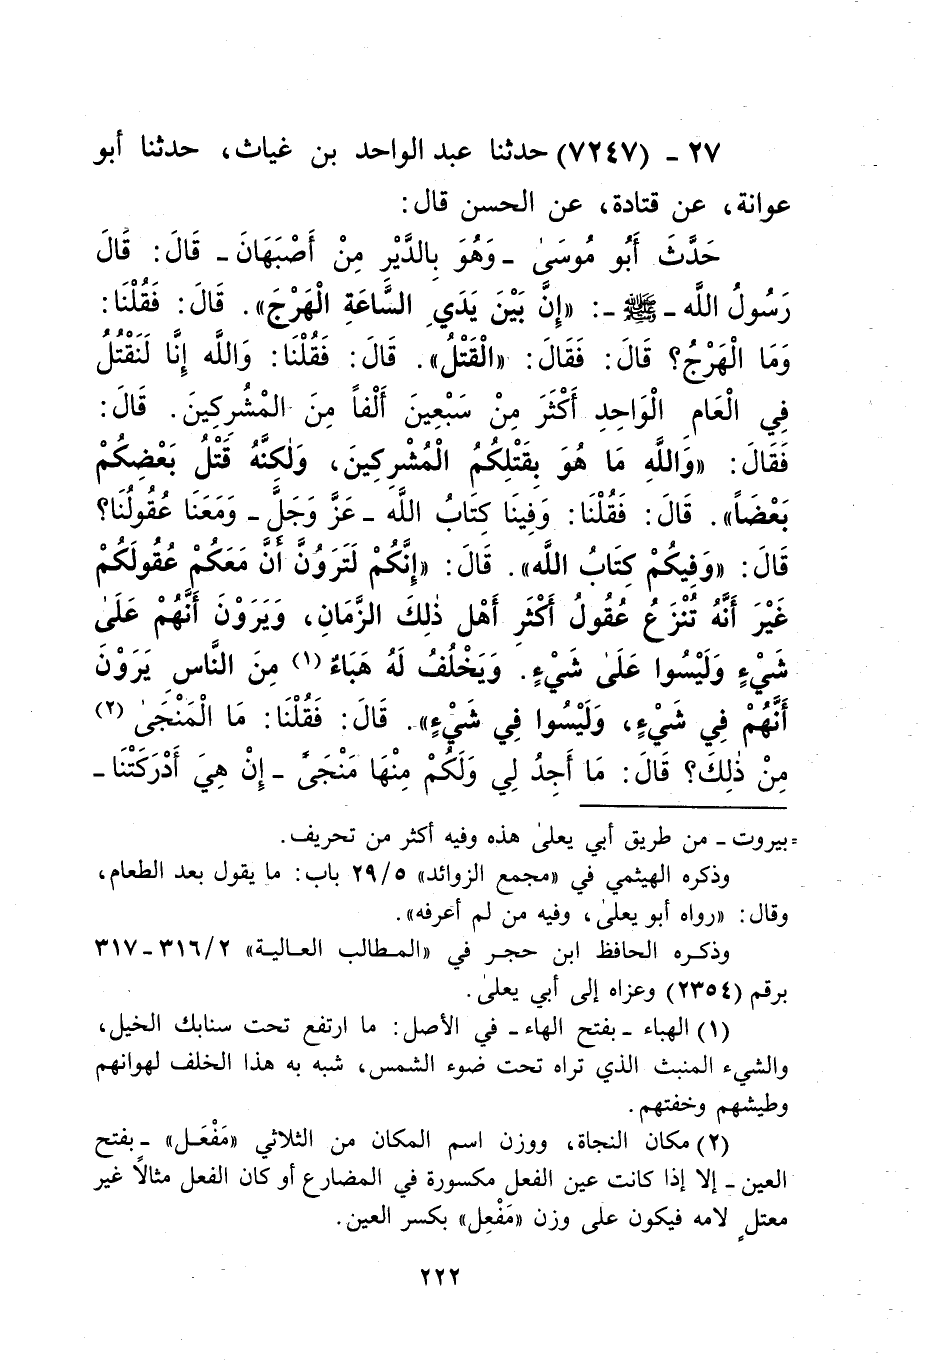 ٢٧ - (٧٢٤٧) حدثنا عبد الواحد بن غياث، حدثنا أبو
عوانة، عن قتادة، عن الحسن قال:
حَدَّثَ أَبُو مُوسَىٰ - وَهُوَ بِالدَّيْرِ مِنْ أَصْبَهَانَ - قَالَ: قَالَ
رَسُولُ اللَّه - ﷺ -: «إِنَّ بَيْنَ يَدَيِ السَّاعَةِ الْهَرْجَ». قَالَ: فَقُلْنَا:
وَمَا الْهَرْجُ؟ قَالَ: فَقَالَ: «الْقَتْلُ». قَالَ: فَقُلْنَا: وَاللَّه إِنَّا لَنَقْتُلُ
فِي الْعَامِ الْوَاحِدِ أَكْثَرَ مِنْ سَبْعِينَ أَلْفاً مِنَ الْمُشْرِكِينَ. قَالَ:
فَقَالَ: «وَاللَّهِ مَا هُوَ بِقَتْلِكُمُ الْمُشْرِكِينَ، وَلٰكِنَّهُ قَتْلُ بَعْضِكُمْ
بَعْضَاً». قَالَ: فَقُلْنَا: وَفِينَا كِتَابُ اللَّه - عَزَّ وَجَلَّ - وَمَعَنَا عُقُولُنَا؟
قَالَ: «وَفِيكُمْ كِتَابُ اللَّه». قَالَ: «إِنَّكُمْ لَتَرَوُنَّ أَنَّ مَعَكُمْ عُقُولَكُمْ
غَيْرَ أَنَّهُ تُنْزَعُ عُقُولُ أَكْثَرِ أَهْلِ ذٰلِكَ الزَّمَانِ، وَيَرَوْنَ أَنَّهُمْ عَلَىٰ
شَيْءٍ وَلَيْسُوا عَلَىٰ شَيْءٍ. وَيَخْلُفُ لَهُ هَبَاءٌ (١) مِنَ النَّاسِ يَرَوْنَ
أَنَّهُمْ فِي شَيْءٍ، وَلَيْسُوا فِي شَيْءٍ». قَالَ: فَقُلْنَا: مَا الْمَنْجَىٰ (٢)
مِنْ ذٰلِكَ؟ قَالَ: مَا أَجِدُ لِي وَلَكُمْ مِنْهَا مَنْجَىً - إِنْ هِيَ أَدْرَكَتْنَا -
= بيروت - من طريق أبي يعلىٰ هذه وفيه أكثر من تحريف.
وذكره الهيثمي في «مجمع الزوائد» ٢٩/٥ باب: ما يقول بعد الطعام،
وقال: «رواه أبو يعلىٰ، وفيه من لم أعرفه».
وذكره الحافظ ابن حجر في «المطالب العالية» ٣١٦/٢ - ٣١٧
برقم (٢٣٥٤) وعزاه إلى أبي يعلىٰ.
(١) الهباء - بفتح الهاء - في الأصل: ما ارتفع تحت سنابك الخيل،
والشيء المنبث الذي تراه تحت ضوء الشمس، شبه به هذا الخلف لهوانهم
وطيشهم وخفتهم.
(٢) مكان النجاة، ووزن اسم المكان من الثلاثي «مَفْعَل» - بفتح
العين - إلا إذا كانت عين الفعل مكسورة في المضارع أو كان الفعل مثالاً غير
معتلٍ لامه فيكون على وزن «مَفْعِل» بكسر العين.
٢٢٢